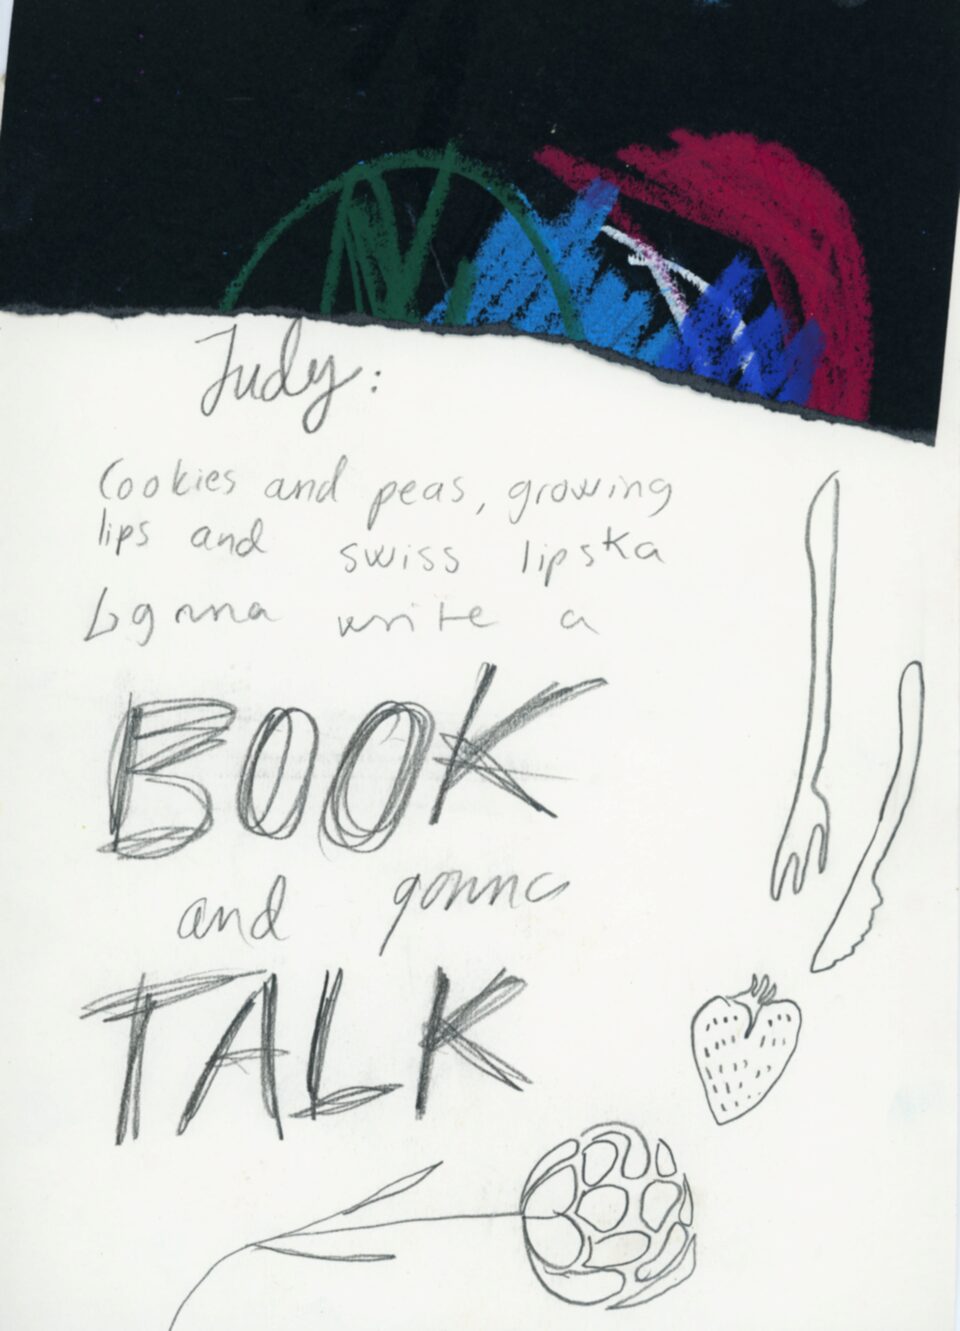 Judy:
Cookies and peas, growing
lips and swiss lipska
gnna write a
BOOK
and gonna
TALK